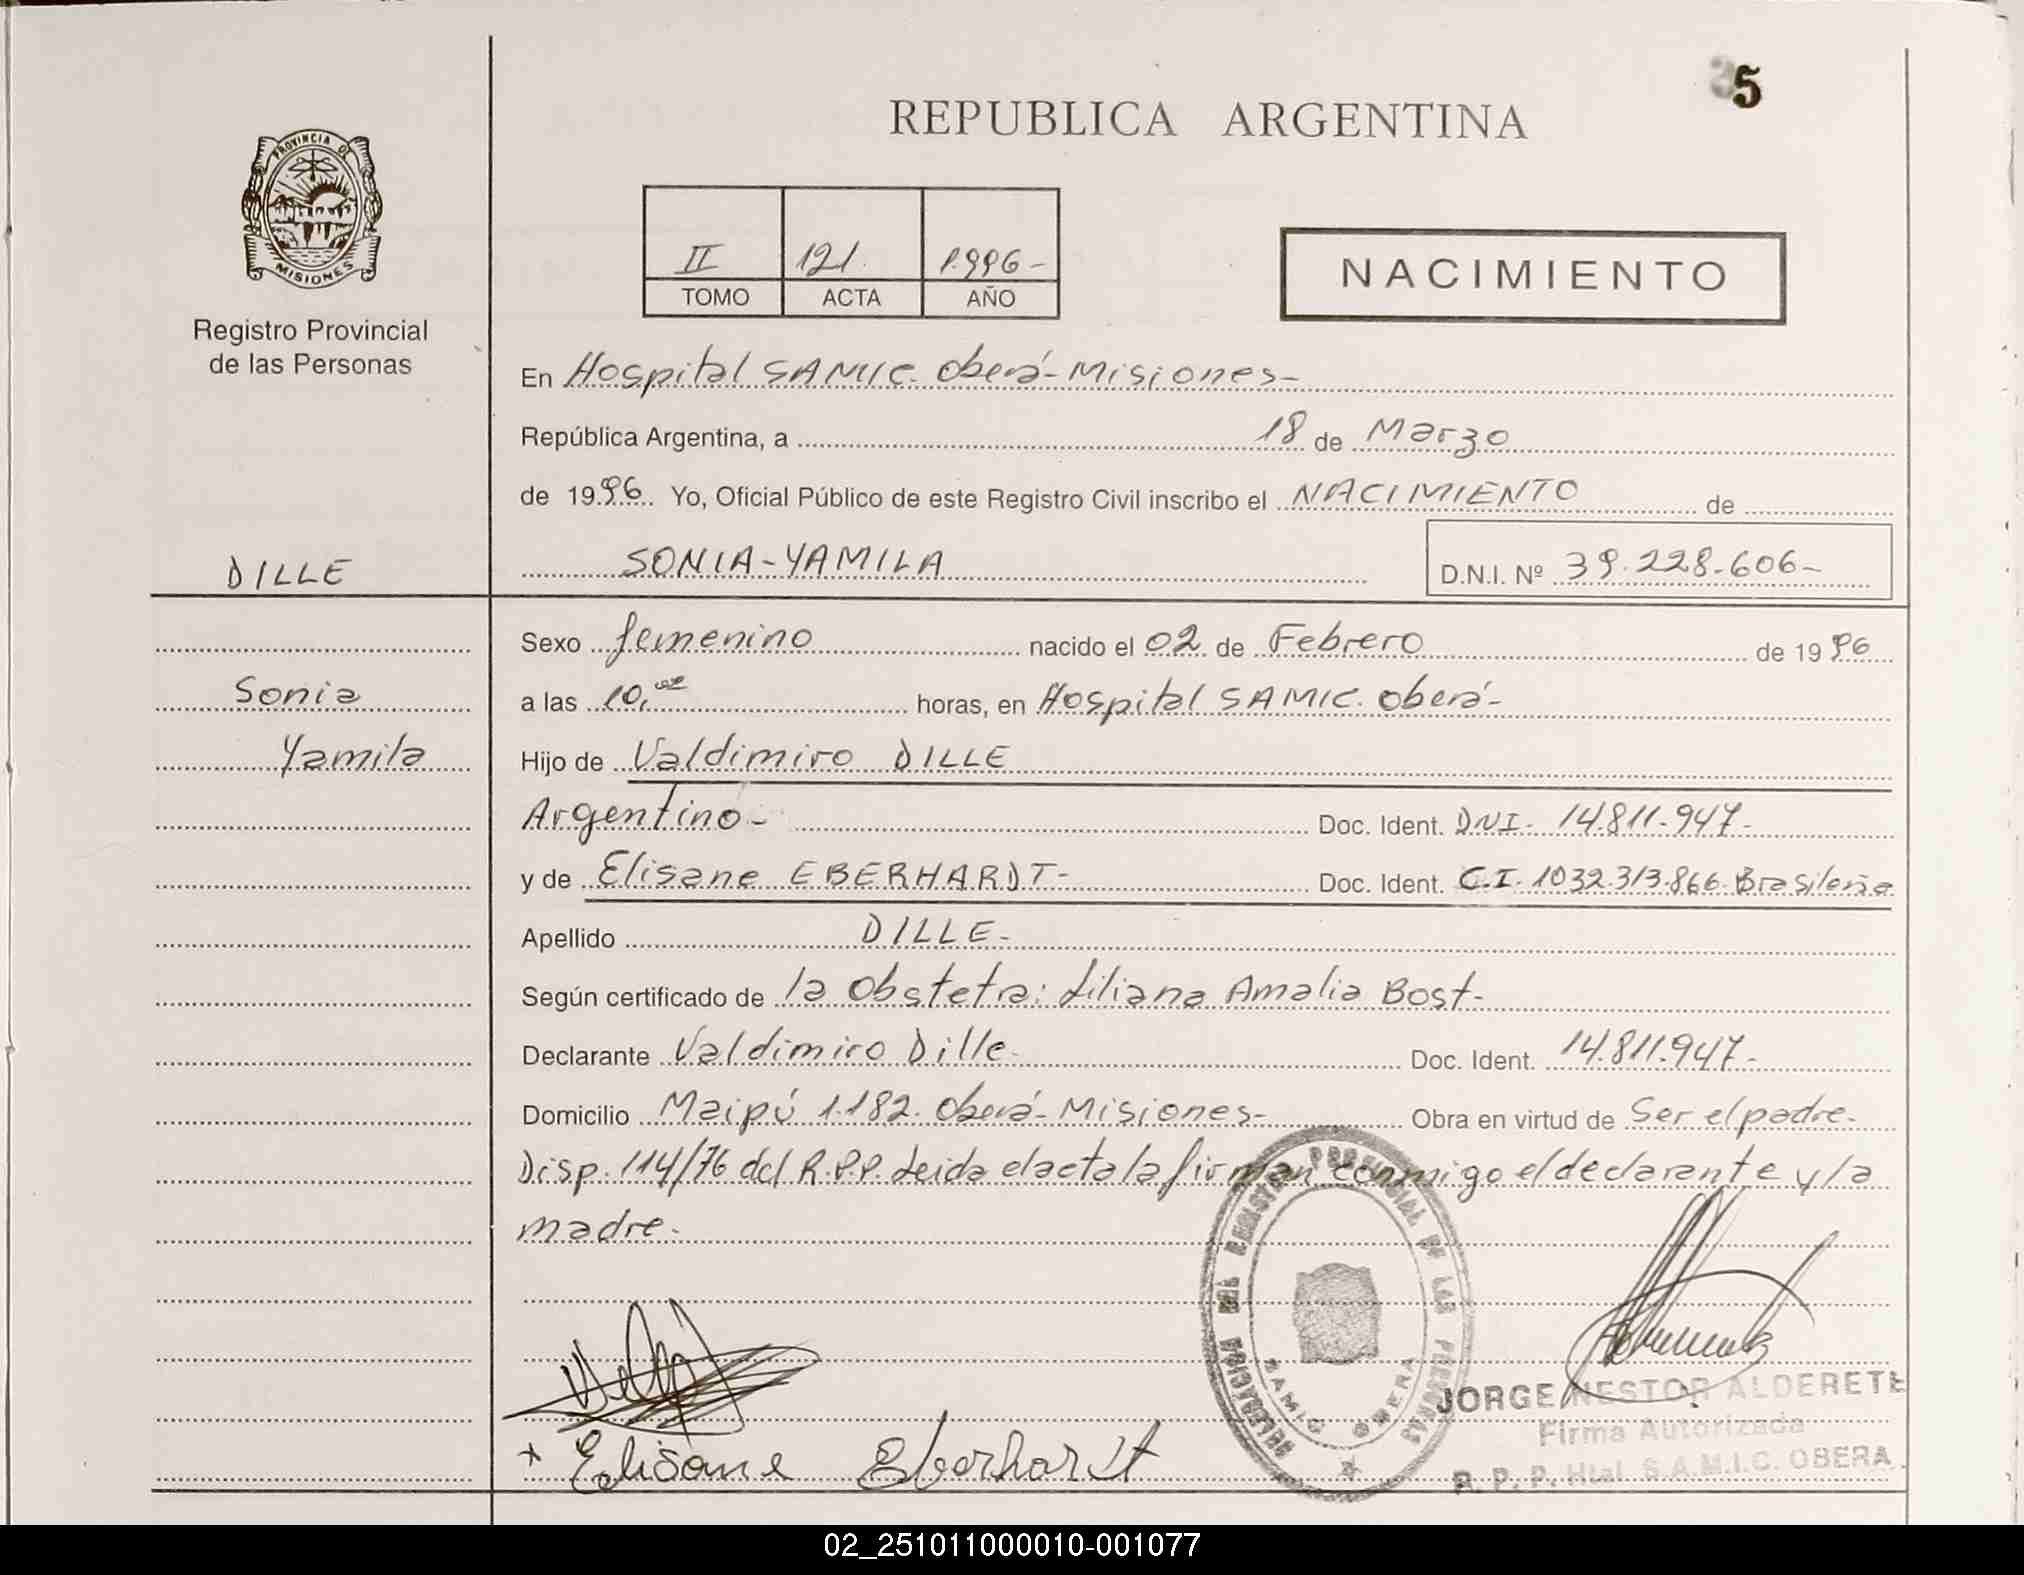 35
REPUBLICA ARGENTINA
PROVINCIA DE
MISIONES
Registro Provincial
de las Personas
II 121. 1.996-
TOMO ACTA AÑO
NACIMIENTO
En Hospital SAMIC. Oberá-Misiones-
República Argentina, a 18 de Marzo
de 1996. Yo, Oficial Público de este Registro Civil inscribo el NACIMIENTO de
DILLE SONIA-YAMILA D.N.I. Nº 39.228.606-
Sexo femenino nacido el 02 de Febrero de 1996
Sonia a las 10,00 horas, en Hospital SAMIC. Oberá-
Yamila Hijo de Valdimiro DILLE
Argentino- Doc. Ident. DNI- 14.811.947-
y de Elisane EBERHARDT- Doc. Ident. C.I. 1032.313.866. Brasileña
Apellido DILLE-
Según certificado de la Obstetra: Liliana Amalia Bost-
Declarante Valdimiro Dille- Doc. Ident. 14.811.947-
Domicilio Maipú 1.182. Oberá-Misiones- Obra en virtud de Ser el padre-
Disp. 114/76 del R.P.P. Leida el acta la firman conmigo el declarante y la
madre-
DELEGACION DEL REGISTRO PROVINCIAL DE LAS PERSONAS
SAMIC OBERA
JORGE NESTOR ALDERETE
Firma Autorizada
R. P. P. Htal S.A.M.I.C. OBERA.
* Elisane Eberhardt
02_251011000010-001077